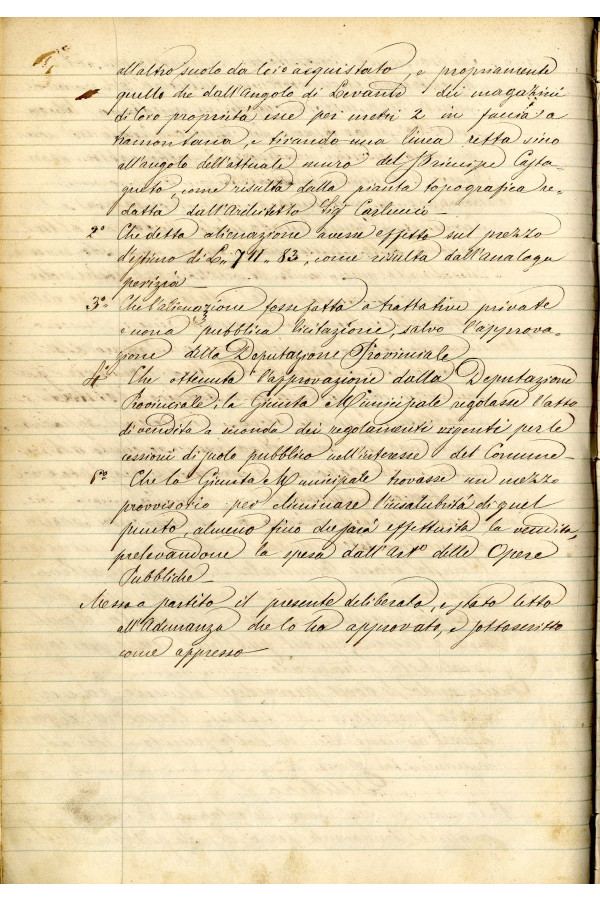 all'altro suolo da loro acquistato, e propriamente
quello che dall'Angolo di Levante dei magazzini
di loro proprietà esce per metri 2 in faccia a
tramontana, e tirando una linea retta sino
all'angolo dell'attuale muro del Principe Casta-
gneto, come risulta dalla pianta topografica re-
datta dall'Architetto Sig Carlucci -
2° Che detta alienazione avesse effetto sul prezzo
d'estimo di L. 711.. 83, come risulta dall'analoga
perizia -
3° Che l'alienazione fosse fatta a trattative private
e non a pubblica licitazione, salvo l'approva-
zione della Deputazione Provinciale
4° Che ottenuta l'approvazione dalla Deputazione
Provinciale, la Giunta Municipale regolasse l'atto
di vendita a seconda dei regolamenti vigenti per le
cessioni di suolo pubblico nell'interesse del Comune -
Che la Giunta Municipale trovasse un mezzo
provvisorio per eliminare l'insalubrità di quel
punto, almeno fino che sarà effettuita la vendita,
prelevandone la spesa dall'Art° delle Opere
Pubbliche -
Messo a partito il presente deliberato, e stato letto
all'Adunanza che lo ha approvato, e sottoscritto
come appresso